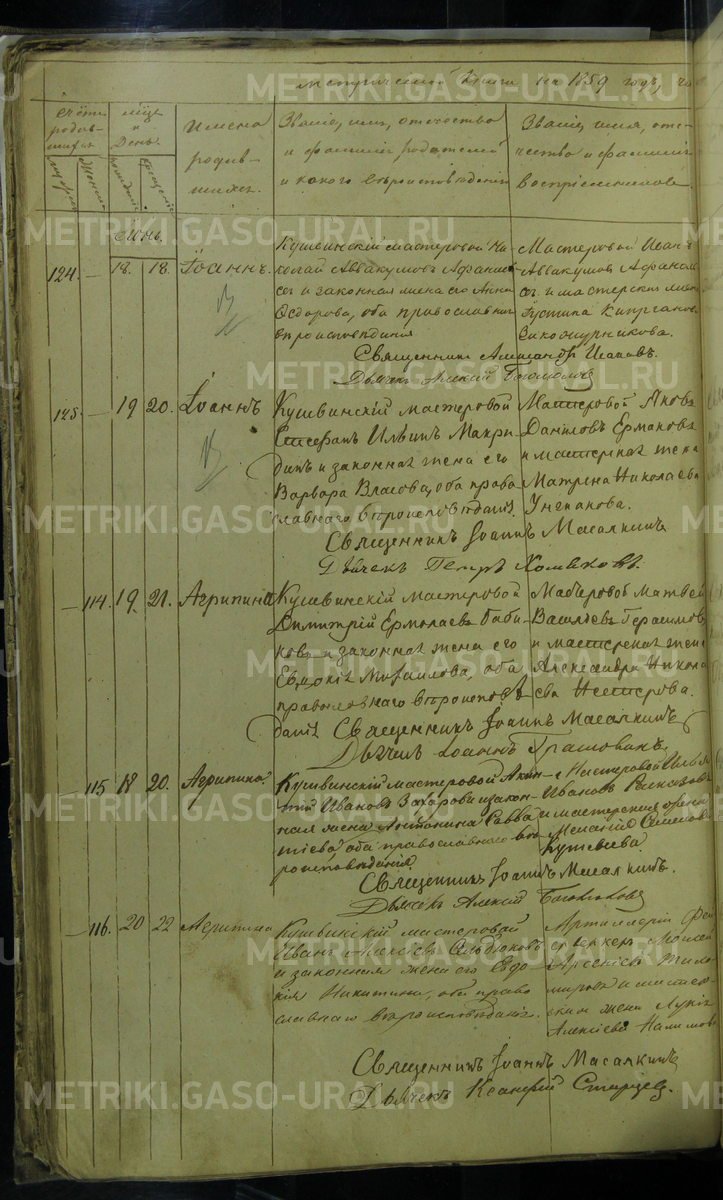 метрической книги на 1859 годъ, ча
METRIKI.GASO-URAL.RU
METRIKI.GASO-URAL.RU
счетъ родив-шихся
мужеска
женска
месяцъ и день.
рожденія
крещенія
Имена
родив-
шихся.
Званіе, имя, отечество
и фамилія родителей
и какого вѣроисповѣданія
Званіе, имя, оте-
чество и фамилія
воспріемниковъ.
Іюнь.
124. — 18. 18. Іоаннъ
Кушвинскій мастеровой Ни-
колай Аввакумовъ Афанась
евъ и законная жена его Анна
Ѳедорова, оба православнаго
вѣроисповѣданія
Мастеровой Иванъ
Аввакумовъ Афанась
евъ и мастерская жена
Устинья
Священникъ Александръ
Дьячекъ Алексій Богомоловъ
125. — 19 20. Іоаннъ
Кушвинскій мастеровой
Стефанъ Ильинъ Макри-
динъ и законная жена его
Варвара Власова, оба право
славнаго вѣроисповѣданія.
Мастеровой Яковъ
Даниловъ Ермаковъ
и мастерская жена
Матрена Николаева
Священникъ Іоаннъ Масалкинъ
Дьячекъ Петръ Хомяковъ.
— 114. 19 21. Агрипина
Кушвинскій мастеровой
Димитрій Ермолаевъ Баби-
ковъ и законная жена его
Евдокія Михаилова, оба
православнаго вѣроисповѣ
данія
Мастеровой Матвей
Васильевъ Герасимовъ
и мастерская жена
Александра Никола
ева Нестерова.
Священникъ Іоаннъ Масалкинъ
Дьячекъ Іоаннъ
— 115 18 20. Агрипина.
Кушвинскій мастеровой Акин-
тій Ивановъ Захаровъ и закон-
ная жена Антонина Савва
тіева оба православнаго вѣ-
роисповѣданія.
Мастеровой Илья
Ивановъ
и мастерская жена
Меланія Семенова
Священникъ Іоаннъ Масалкинъ.
Дьячекъ Алексій Богомоловъ
— 116. 20 22 Агрипина
Кушвинскій мастеровой
Иванъ Алексѣевъ
и законная жена его Евдо-
кія Никитина, оба право
славнаго вѣроисповѣданія.
Артиллеріи Фей
ерверкеръ Моисей
Арсеніевъ Тихо
мировъ и мастер-
ская жена Лукія
Алексіева Налимова
Священникъ Іоаннъ Масалкинъ
Дьячекъ Старцевъ.